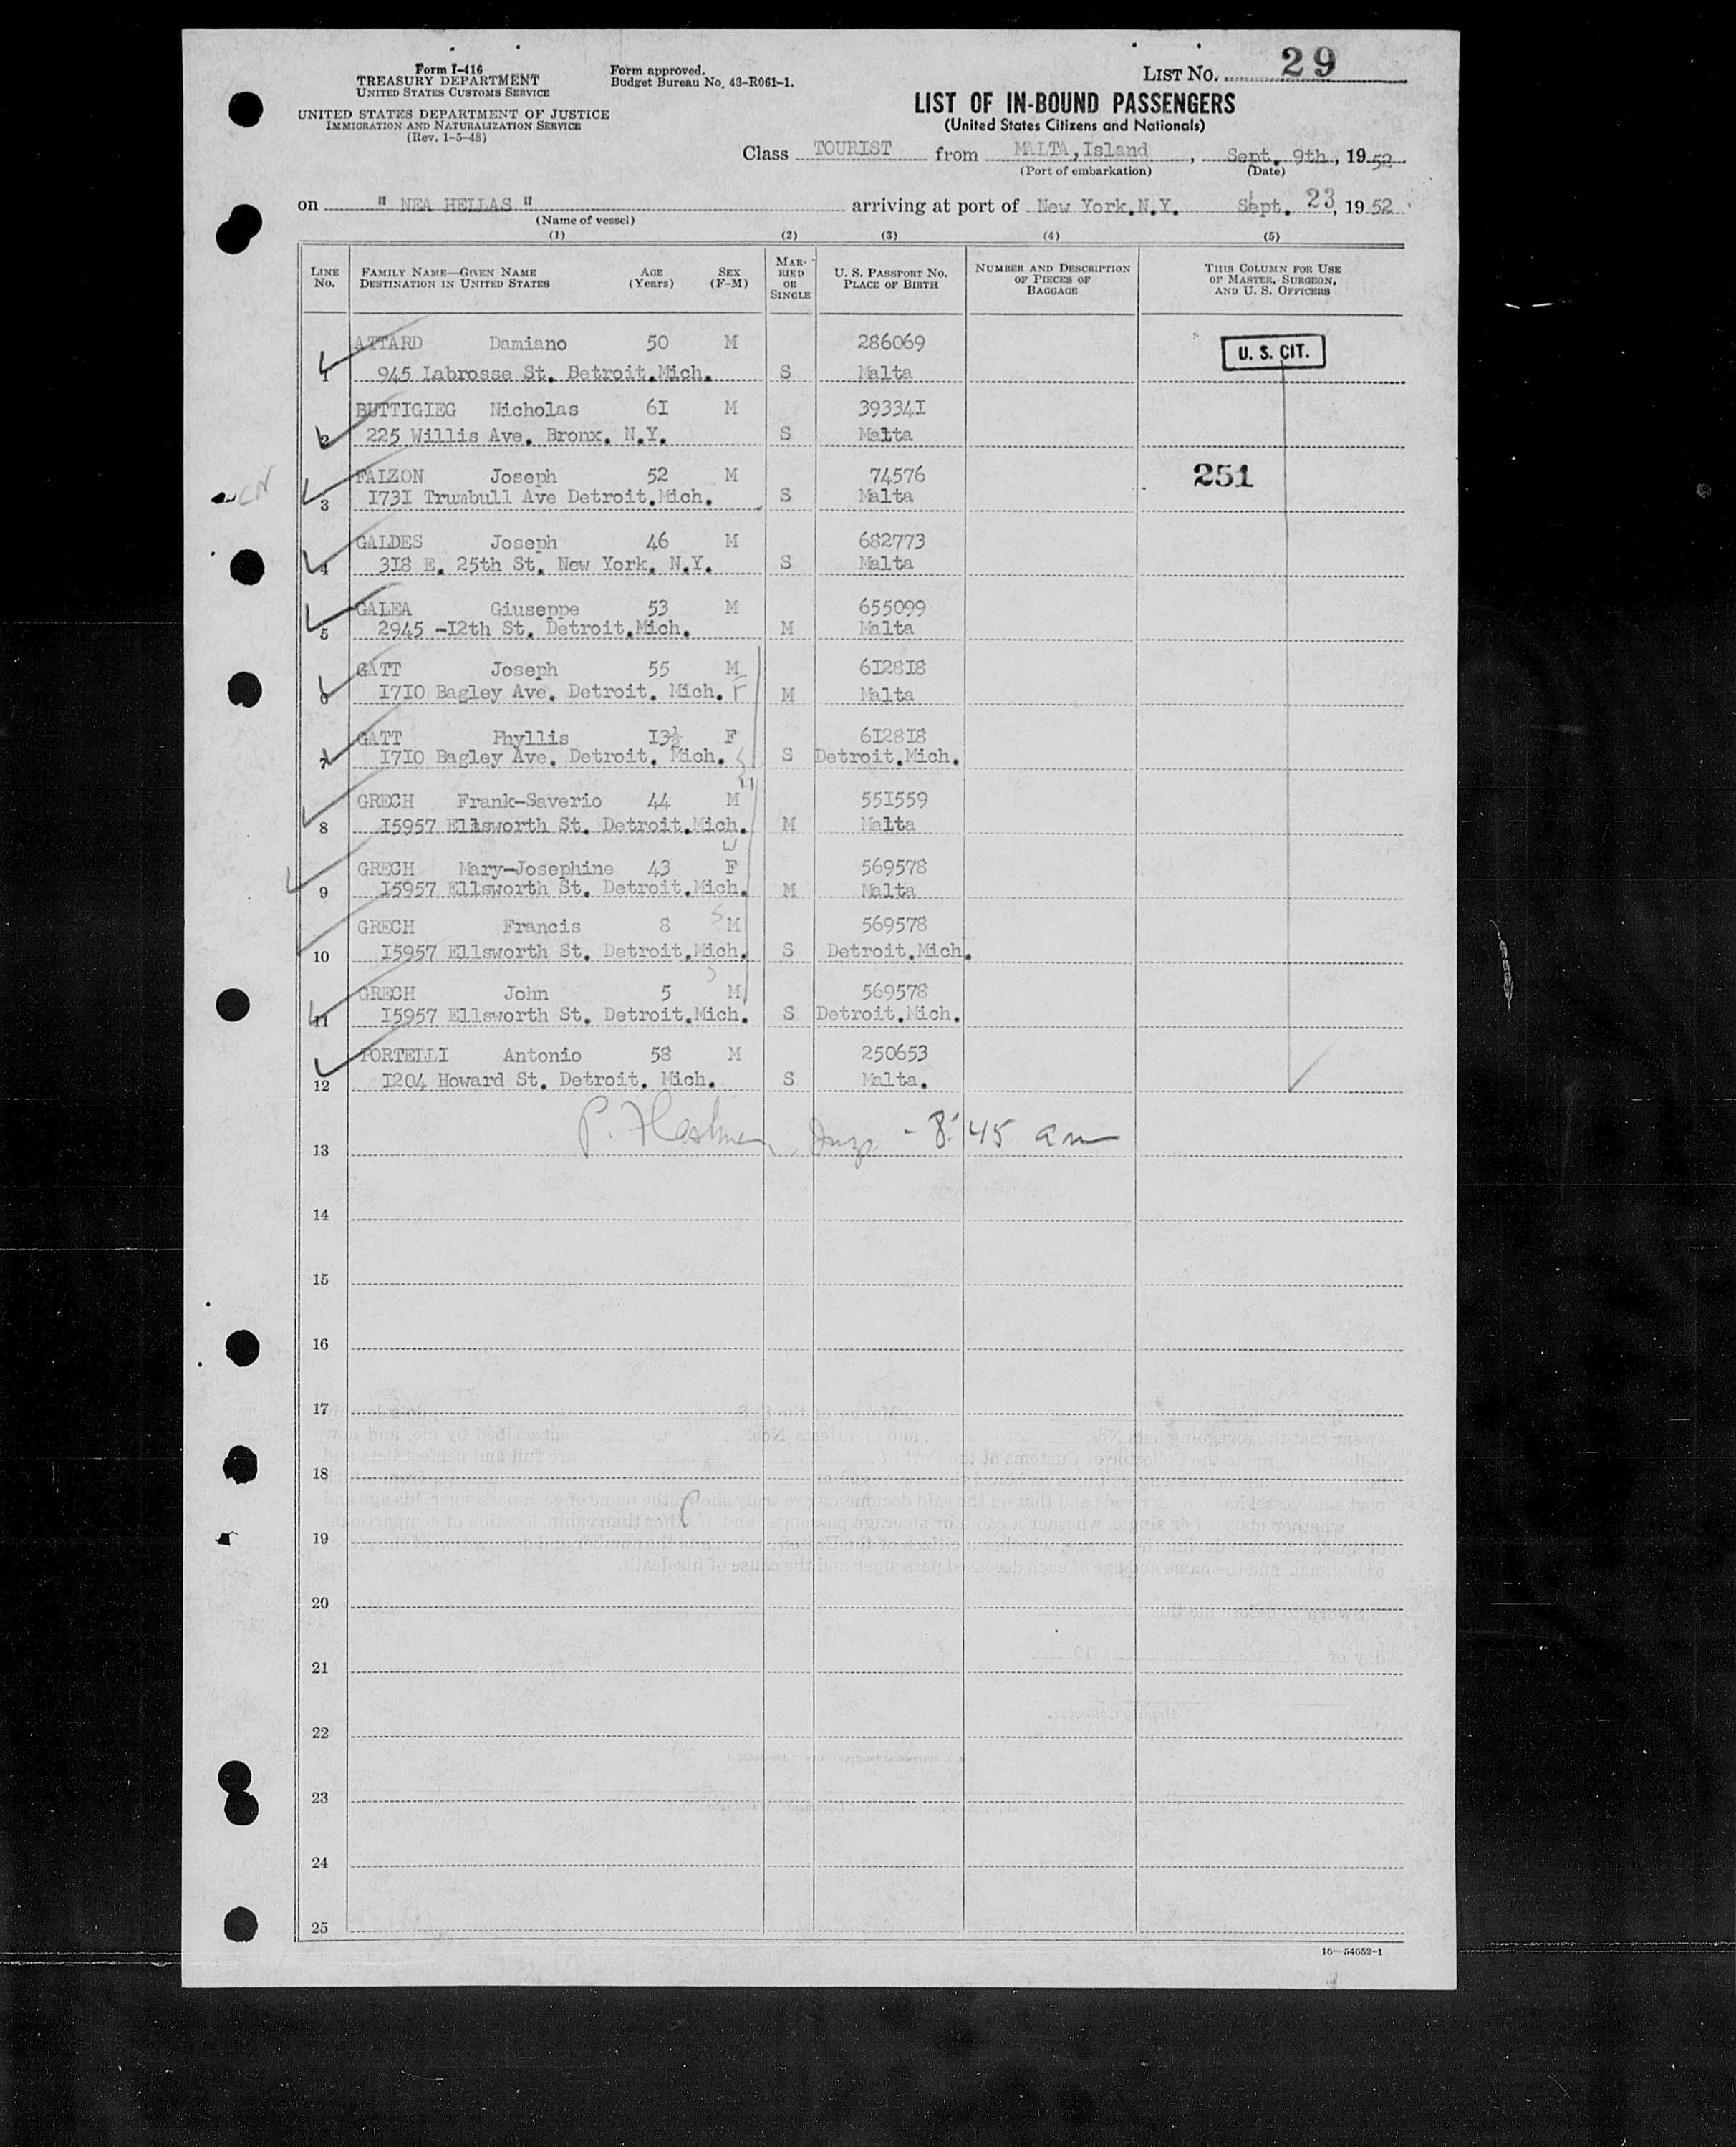 Form I-416
TREASURY DEPARTMENT
UNITED STATES CUSTOMS SERVICE
UNITED STATES DEPARTMENT OF JUSTICE
IMMIGRATION AND NATURALIZATION SERVICE
(Rev. 1-5-48)
Form approved.
Budget Bureau No. 43-R061-1.
LIST NO. 29
LIST OF IN-BOUND PASSENGERS
(United States Citizens and Nationals)
Class TOURIST from MALTA, Island, Sept. 9th, 1952
(Port of embarkation) (Date)
on " NEA HELLAS " arriving at port of New York.N.Y. Sept. 23, 1952
(Name of vessel)
(1) (2) (3) (4) (5)
LINE NO.
FAMILY NAME—GIVEN NAME
DESTINATION IN UNITED STATES
AGE (Years)
SEX (F-M)
MARRIED OR SINGLE
U. S. PASSPORT NO.
PLACE OF BIRTH
NUMBER AND DESCRIPTION OF PIECES OF BAGGAGE
THIS COLUMN FOR USE OF MASTER, SURGEON, AND U. S. OFFICERS
ATTARD Damiano 50 M 286069
U. S. CIT.
1 945 Labrosse St. Detroit.Mich. S Malta
BUTTIGIEG Nicholas 6I M 39334I
2 225 Willis Ave. Bronx. N.Y. S Malta
FALZON Joseph 52 M 74576
251
3 I73I Trumbull Ave Detroit.Mich. S Malta
GALDES Joseph 46 M 682773
4 3I8 E. 25th St. New York. N.Y. S Malta
GALEA Giuseppe 53 M 655099
5 2945 -I2th St. Detroit.Mich. M Malta
GATT Joseph 55 M 6I28I8
6 I7IO Bagley Ave. Detroit. Mich. F M Malta
GATT Phyllis I3½ F 6I28I8
7 I7IO Bagley Ave. Detroit. Mich. S Detroit.Mich.
GRECH Frank-Saverio 44 M 55I559
8 I5957 Ellsworth St. Detroit.Mich. M Malta
W
GRECH Mary-Josephine 43 F 569578
9 I5957 Ellsworth St. Detroit.Mich. M Malta
GRECH Francis 8 S M 569578
10 I5957 Ellsworth St. Detroit.Mich. S Detroit.Mich.
S
GRECH John 5 M 569578
11 I5957 Ellsworth St. Detroit.Mich. S Detroit.Mich.
PORTELLI Antonio 58 M 250653
12 I204 Howard St. Detroit. Mich. S Malta.
P. - 8:45 am
13
14
15
16
17
18
19
20
21
22
23
24
25
16-54652-1